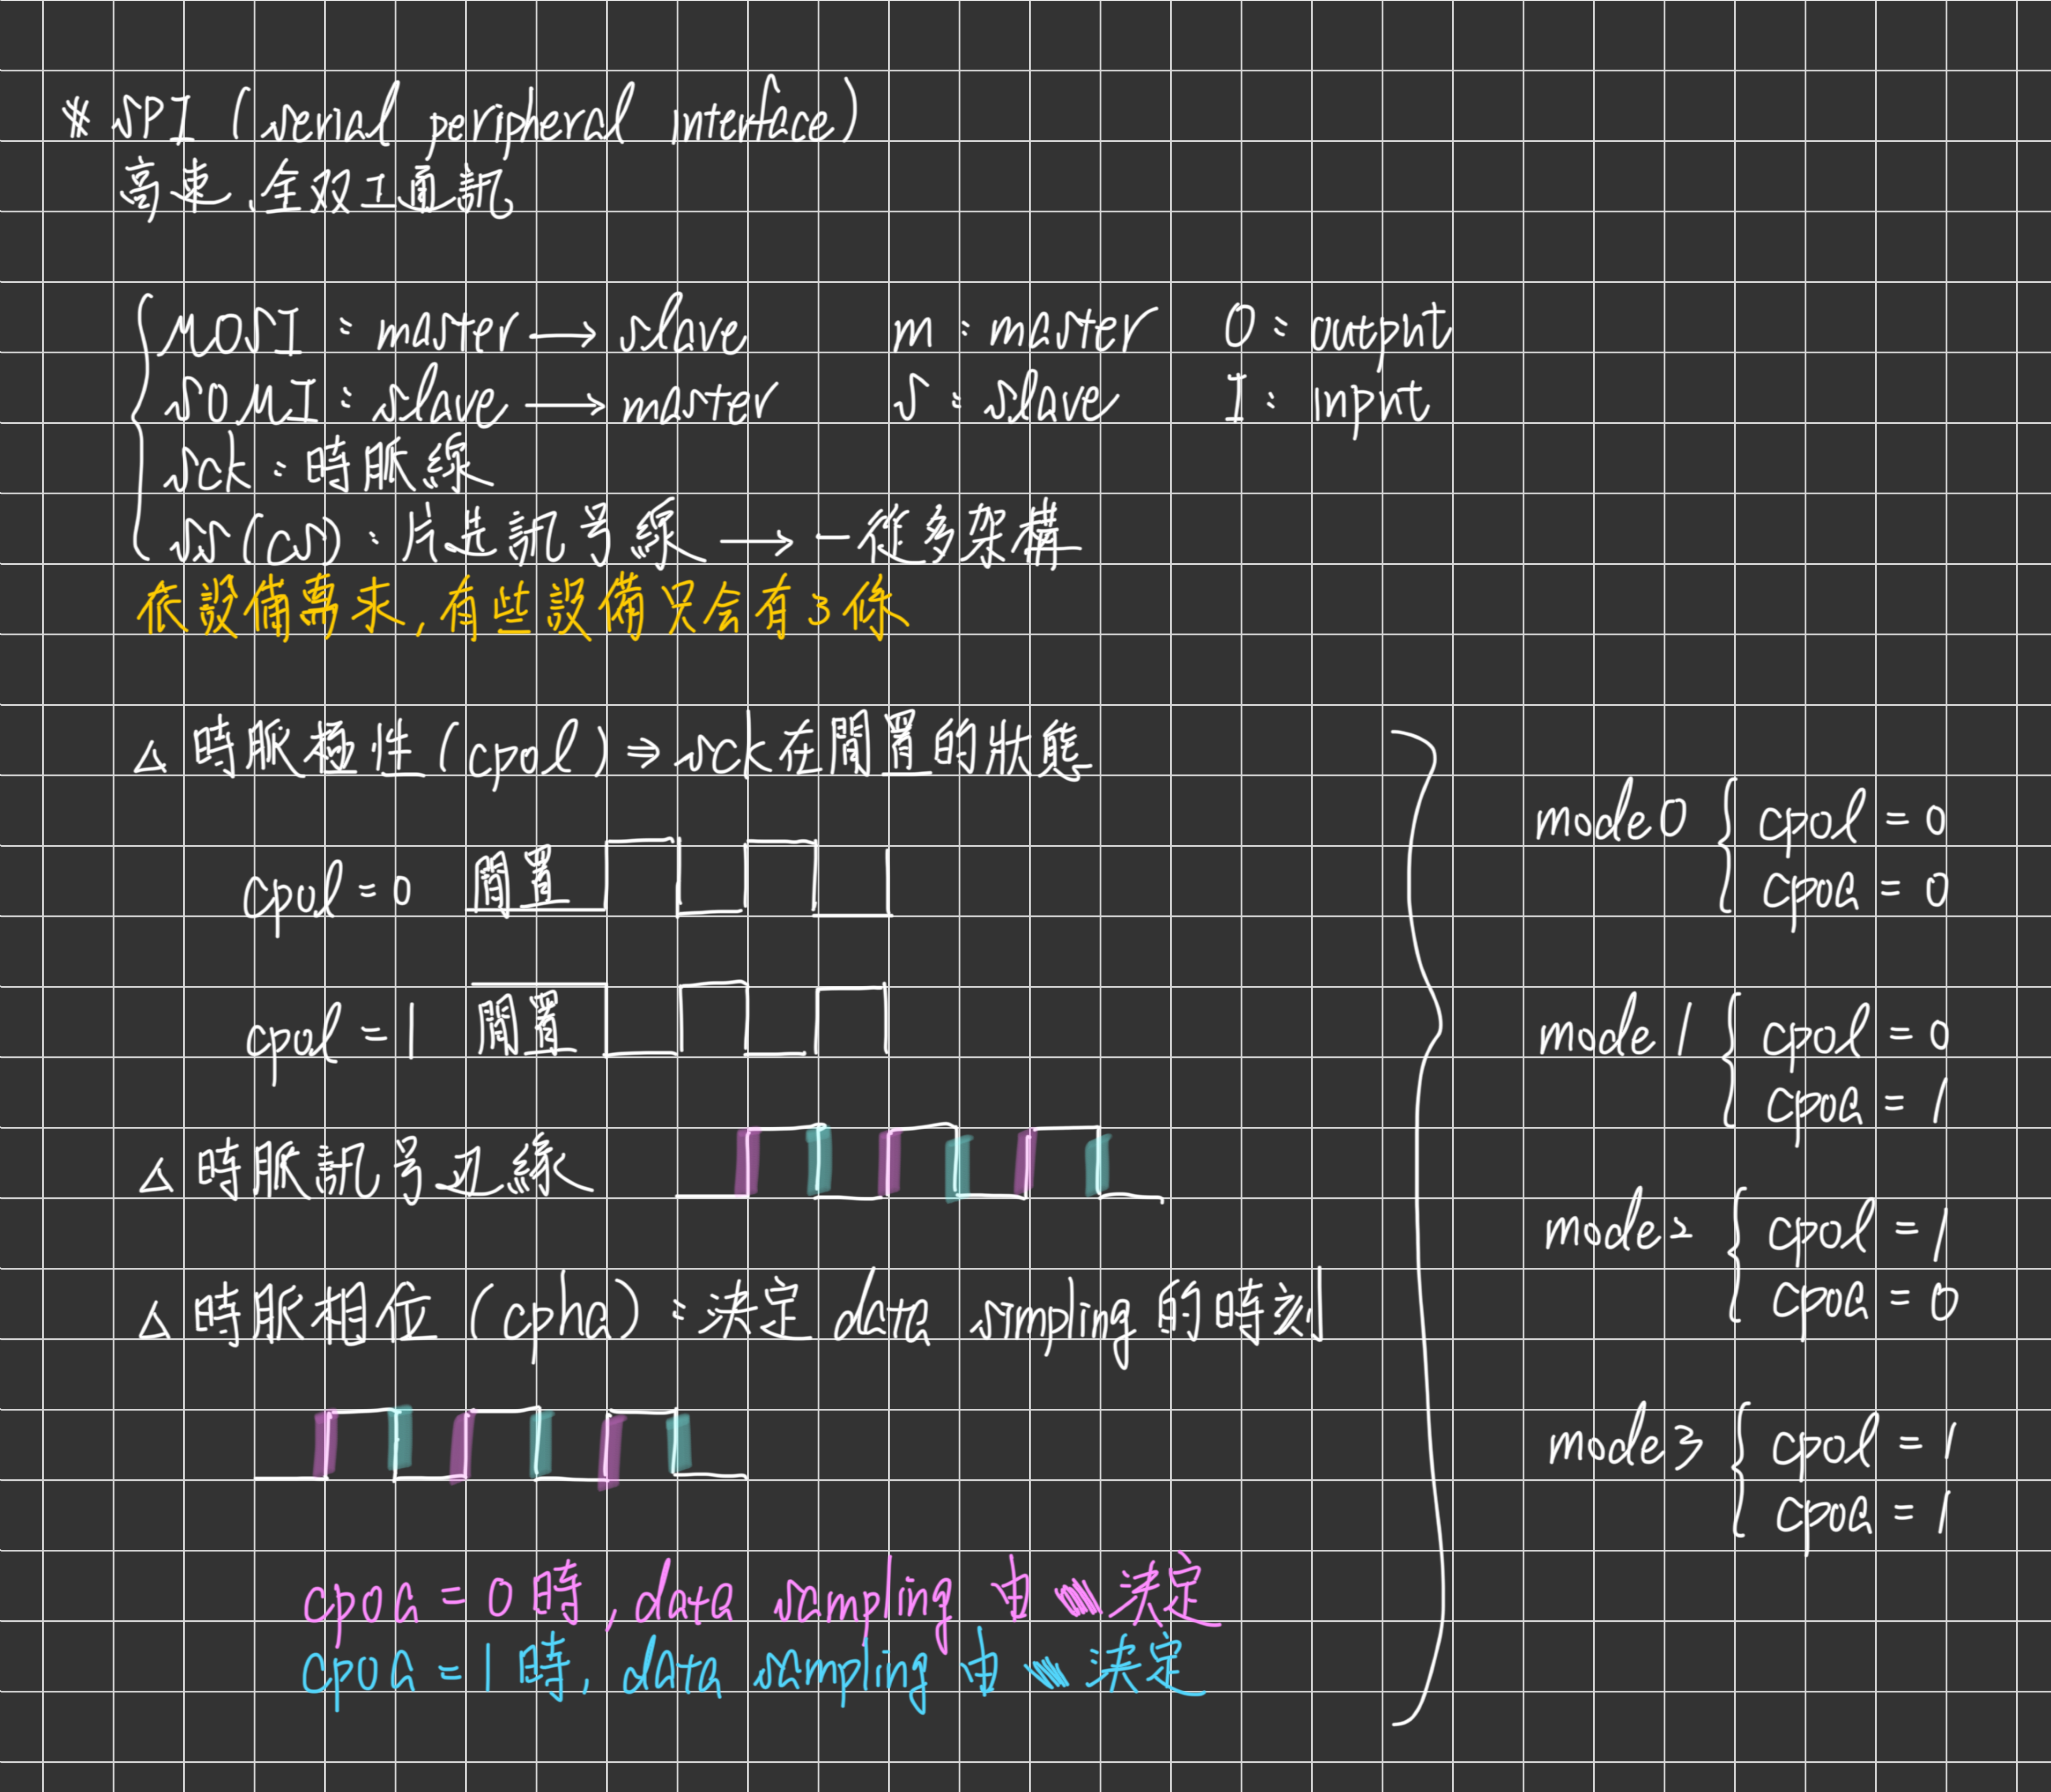 * SPI (serial peripheral interface)
高速、全双工通訊
MOSI : master → slave  m : master  O : output
SOMI : slave → master  S : slave  I : input
sck : 時脈線
SS(CS) : 片选訊号線 → 一從多架構
依設備需求, 有些設備只会有3條
△ 時脈極性(cpol) ⇒ sck在閒置的狀態
cpol = 0 閒置
cpol = 1 閒置
△ 時脈訊号边緣
△ 時脈相位(cpha) : 決定 data simpling 的時刻
cpoa = 0 時, data sampling 由 決定
cpoa = 1 時, data sampling 由 決定
mode 0 { cpol = 0
cpoa = 0
mode 1 { cpol = 0
cpoa = 1
mode 2 { cpol = 1
cpoa = 0
mode 3 { cpol = 1
cpoa = 1